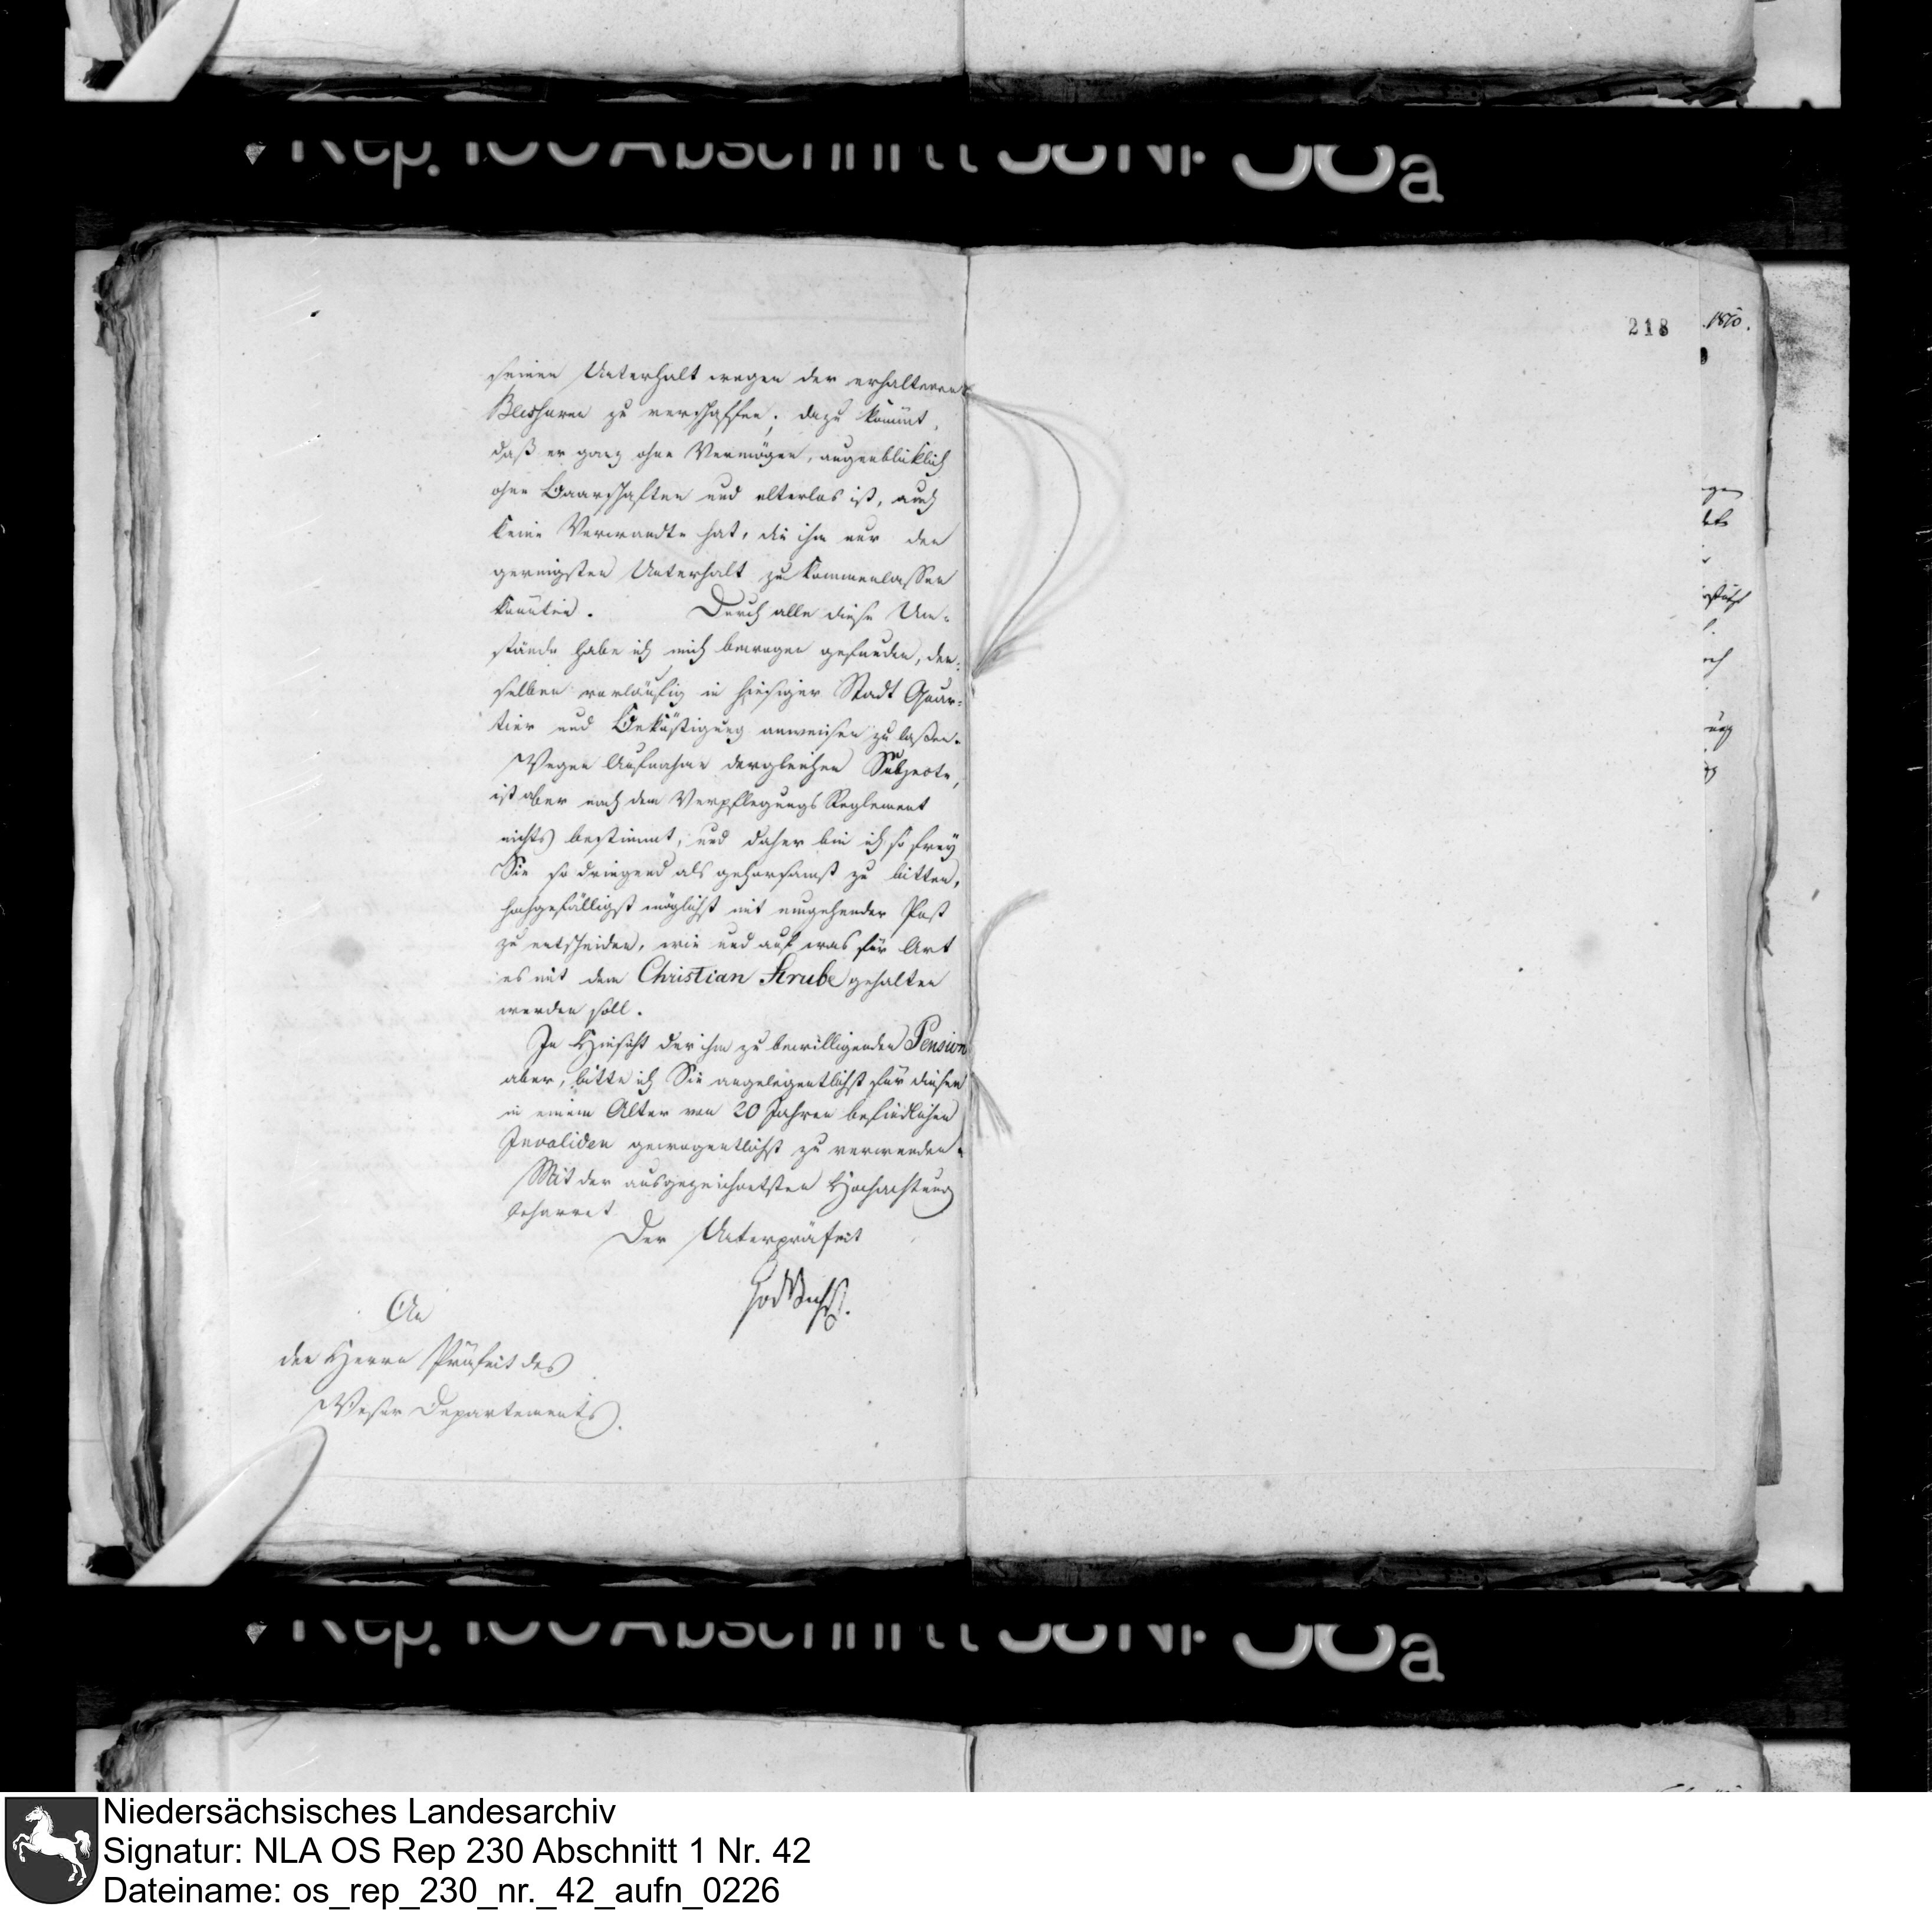 Rep. 100 Abschnitt 58 Nr. 38a
218
1810.
seinen Unterhalt wegen der erhaltenen
Blessuren zu verschaffen; dazu kömmt,
daß er ganz ohne Vermögen, augenblicklich
ohne Baarschaften und elterlos ist, auch
keine Verwandte hat, die ihm nur den
geringsten Unterhalt zu kommen lassen
könnten. Durch alle diese Um-
stände habe ich mich bewogen gefunden, den-
selben vorläufig in hiesiger Stadt Quar-
tier und Beköstigung anweisen zu laßen.
Wegen Aufnahme dergleichen Subjecte,
ist aber nach dem Verpflegungs Reglement
nichts bestimmt, und daher bin ich so frey
Sie so dringend als gehorsamst zu bitten,
hochgefälligst möglichst mit umgehender Post
zu entscheiden, wie und auf was für Art
es mit dem Christian Strube gehalten
werden soll.
In Hinsicht der ihm zu bewilligenden Pension
aber, bitte ich Sie angelegentlichst für diesen
in einem Alter von 20 Jahren befindlichen
Invaliden gewogentlichst zu verwenden.
Mit der ausgezeichnetsten Hochachtung
beharret
Der Unterpräfect
An
den Herrn Präfect des
Weser Departements.
Rep. 100 Abschnitt 58 Nr. 38a
Niedersächsisches Landesarchiv
Signatur: NLA OS Rep 230 Abschnitt 1 Nr. 42
Dateiname: os_rep_230_nr._42_aufn_0226